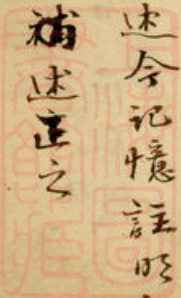 述今記憶註明
補述正之